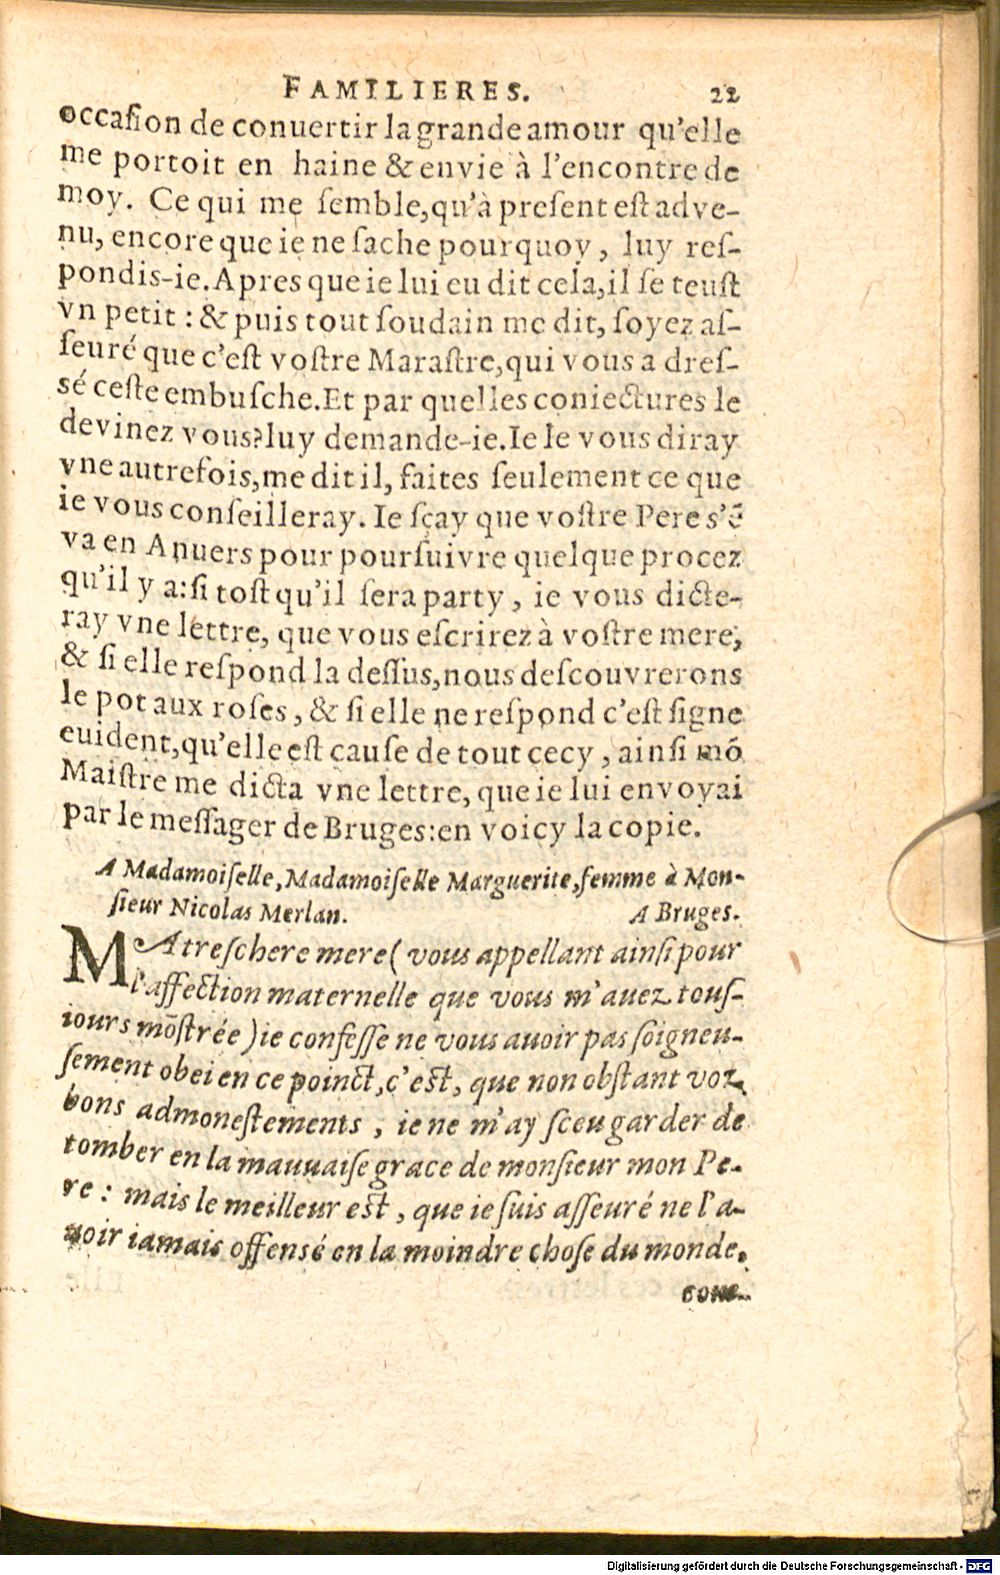 FAMILIERES. 22
occaſion de conuertir la grande amour qu'elle
me portoit en haine & envie à l'encontre de
moy. Ce qui me ſemble, qu'à preſent eſt adve-
nu, encore que ie ne ſache pourquoy, luy reſ-
pondis-ie. Apres que ie lui eu dit cela, il ſe teuſt
vn petit : & puis tout ſoudain me dit, ſoyez aſ-
ſeuré que c'eſt voſtre Maraſtre, qui vous a dreſ-
sé ceſte embuſche. Et par quelles coniectures le
devinez vous? luy demande-ie. Ie le vous diray
vne autrefois, me dit il, faites ſeulement ce que
ie vous conſeilleray. Ie ſçay que voſtre Pere s'ē
va en Anuers pour pourſuivre quelque procez
qu'il y a: ſi toſt qu'il ſera party, ie vous dicte-
ray vne lettre, que vous eſcrirez à voſtre mere;
& ſi elle reſpond la deſſus, nous deſcouvrerons
le pot aux roſes, & ſi elle ne reſpond c'eſt ſigne
euident, qu'elle eſt cauſe de tout cecy, ainſi mō
Maiſtre me dicta vne lettre, que ie lui envoyai
par le meſſager de Bruges: en voicy la copie.
A Madamoiſelle, Madamoiſelle Marguerite, femme à Mon-
ſieur Nicolas Merlan. A Bruges.
MA treſchere mere ( vous appellant ainſi pour
l'affection maternelle que vous m'auez touſ-
iours mōſtrée ) ie confeſſe ne vous auoir pas ſoigneu-
ſement obei en ce poinct, c'eſt, que non obſtant voz
bons admoneſtements, ie ne m'ay ſceu garder de
tomber en la mauuaiſe grace de monſieur mon Pe-
re : mais le meilleur eſt, que ie ſuis aſſeuré ne l'a-
uoir iamais offensé en la moindre choſe du monde,
com-
Digitalisierung gefördert durch die Deutsche Forschungsgemeinschaft - DFG